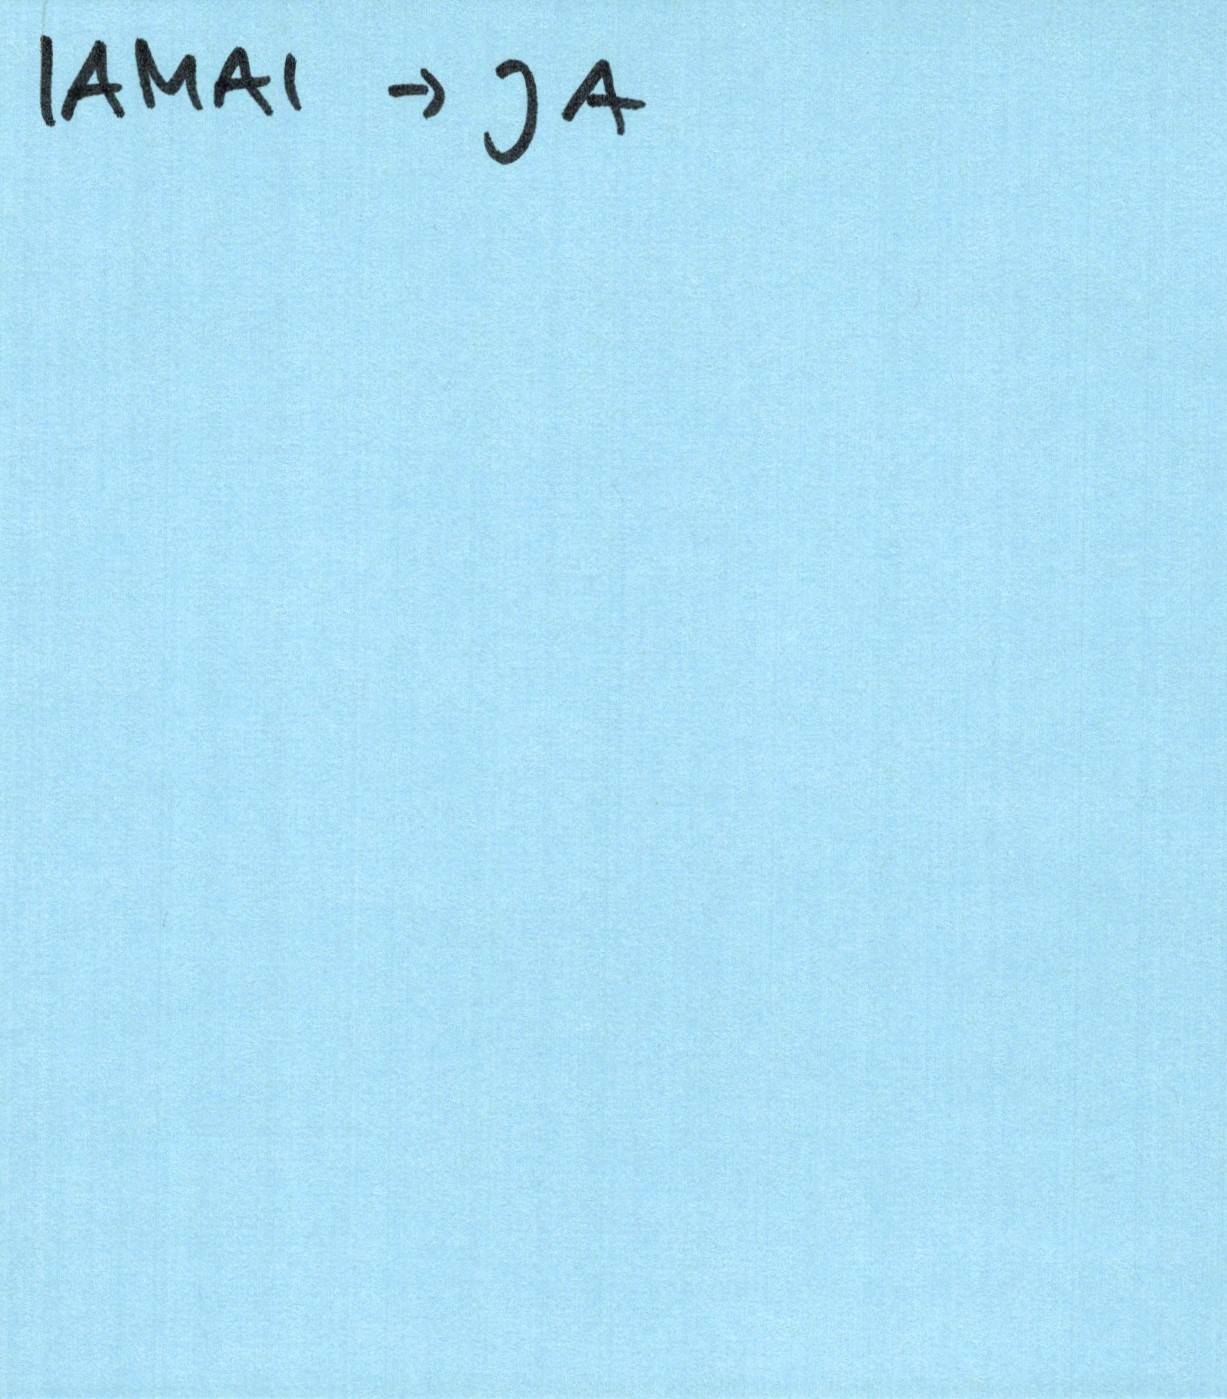 IAMAI → JA